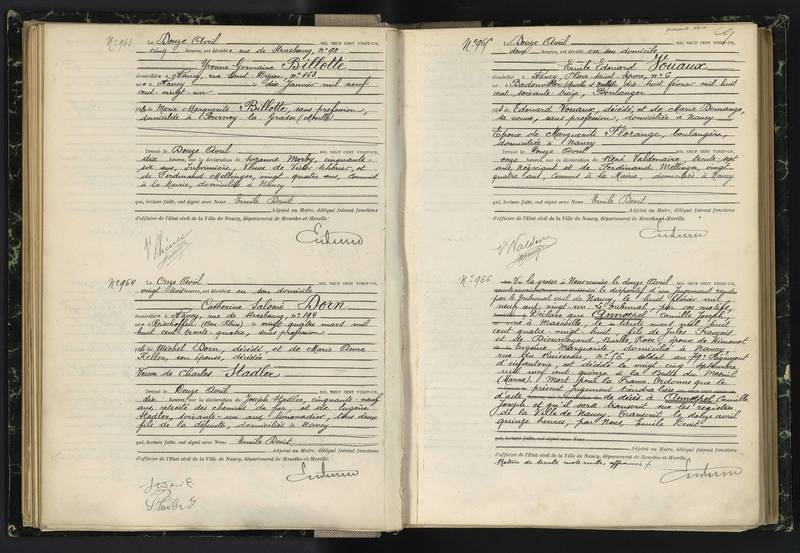 N° 963
Le Douze Avril MIL NEUF CENT VINGT-UN,
cinq heures, est décédée rue de Strasbourg, n° 92
Yvonne Germaine Billotte
domiciliée à Nancy, rue Saint Dizier, n° 163
née à Nancy le dix Janvier mil neuf
cent vingt un
fille de Marie Marguerite Billotte, sans profession,
domiciliée à Pournoy la Grasse (Moselle)
Dressé le Douze Avril MIL NEUF CENT VINGT-UN,
dix heures, sur la déclaration de Suzanne Morby, cinquante-
six ans, Infirmière, Veuve de Victor Thirier, et
de Ferdinand Mettinger, vingt-quatre ans, Commis
à la Mairie, domiciliés à Nancy
qui, lecture faite, ont signé avec Nous Emile Devit
Adjoint au Maire, délégué faisant fonctions
d'officier de l'État civil de la Ville de Nancy, département de Meurthe-et-Moselle.
N° 964
Le Onze Avril MIL NEUF CENT VINGT-UN,
vingt heures, est décédée en son domicile
Catherine Salomé Dorn
domiciliée à Nancy, rue de Strasbourg, n° 194
née à Reischoffen (Bas Rhin) le vingt quatre mars mil
huit cent trente quatre, sans profession
fille de Michel Dorn, décédé, et de Marie Anne
Keller, son épouse, décédée
Veuve de Charles Stadler
Dressé le Douze Avril MIL NEUF CENT VINGT-UN,
dix heures, sur la déclaration de Joseph Stadler, cinquante-neuf
ans, retraité des chemins de fer, et de Eugène
Stadler, soixante-un ans, limonadier, tous deux
fils de la défunte, domiciliés à Nancy
qui, lecture faite, ont signé avec Nous Emile Devit
Adjoint au Maire, délégué faisant fonctions
d'officier de l'État civil de la Ville de Nancy, département de Meurthe-et-Moselle.
Stadler
N° 965
Le Douze Avril MIL NEUF CENT VINGT-UN,
deux heures, est décédé en son domicile
Emile Edouard Vouaux
domicilié à Nancy, Place Saint Epvre, n° 6
né à Badonviller (Meurthe et Moselle), dix huit février mil huit
cent soixante treize, Boulanger
fils de Edouard Vouaux, décédé, et de Marie Demange,
sa veuve, sans profession, domiciliée à Nancy
Epoux de Marguerite Florange, boulangère,
domiciliée à Nancy
Dressé le Douze Avril MIL NEUF CENT VINGT-UN,
onze heures, sur la déclaration de René Valdenaire, trente sept
ans, Négociant et de Ferdinand Mettinger, vingt
quatre ans, Commis à la Mairie, domiciliés à Nancy
qui, lecture faite, ont signé avec Nous Emile Devit
Adjoint au Maire, délégué faisant fonctions
d'officier de l'État civil de la Ville de Nancy, département de Meurthe-et-Moselle.
N° 966
De la grosse à Nous remise le douze Avril
le dispositif d'un Jugement rendu
par le Tribunal civil de Nancy, le huit février mil
neuf cent vingt un. Le Tribunal, par ces motifs,
Déclare que Camille Joseph,
né à Marseille, le trente mars mil huit
cent quatre vingt huit, fils de Jules François
et de Rose, époux de
Eugénie Marguerite, domicilié à Nancy,
rue du Ruisseau, N° 56, soldat au 79e Régiment
d'infanterie, est décédé le vingt cinq septembre
mil neuf cent quinze à
(Marne), Mort pour la France. Ordonne que le
présent jugement tiendra lieu
d'acte de décès à Camille
Joseph et qu'il sera transcrit sur les registres
de la Ville de Nancy. Transcrit le douze avril
quinze heures, par Nous, Emile Devit
qui, lecture faite, ont signé avec Nous
Adjoint au Maire, délégué faisant fonctions
d'officier de l'État civil de la Ville de Nancy, département de Meurthe-et-Moselle.